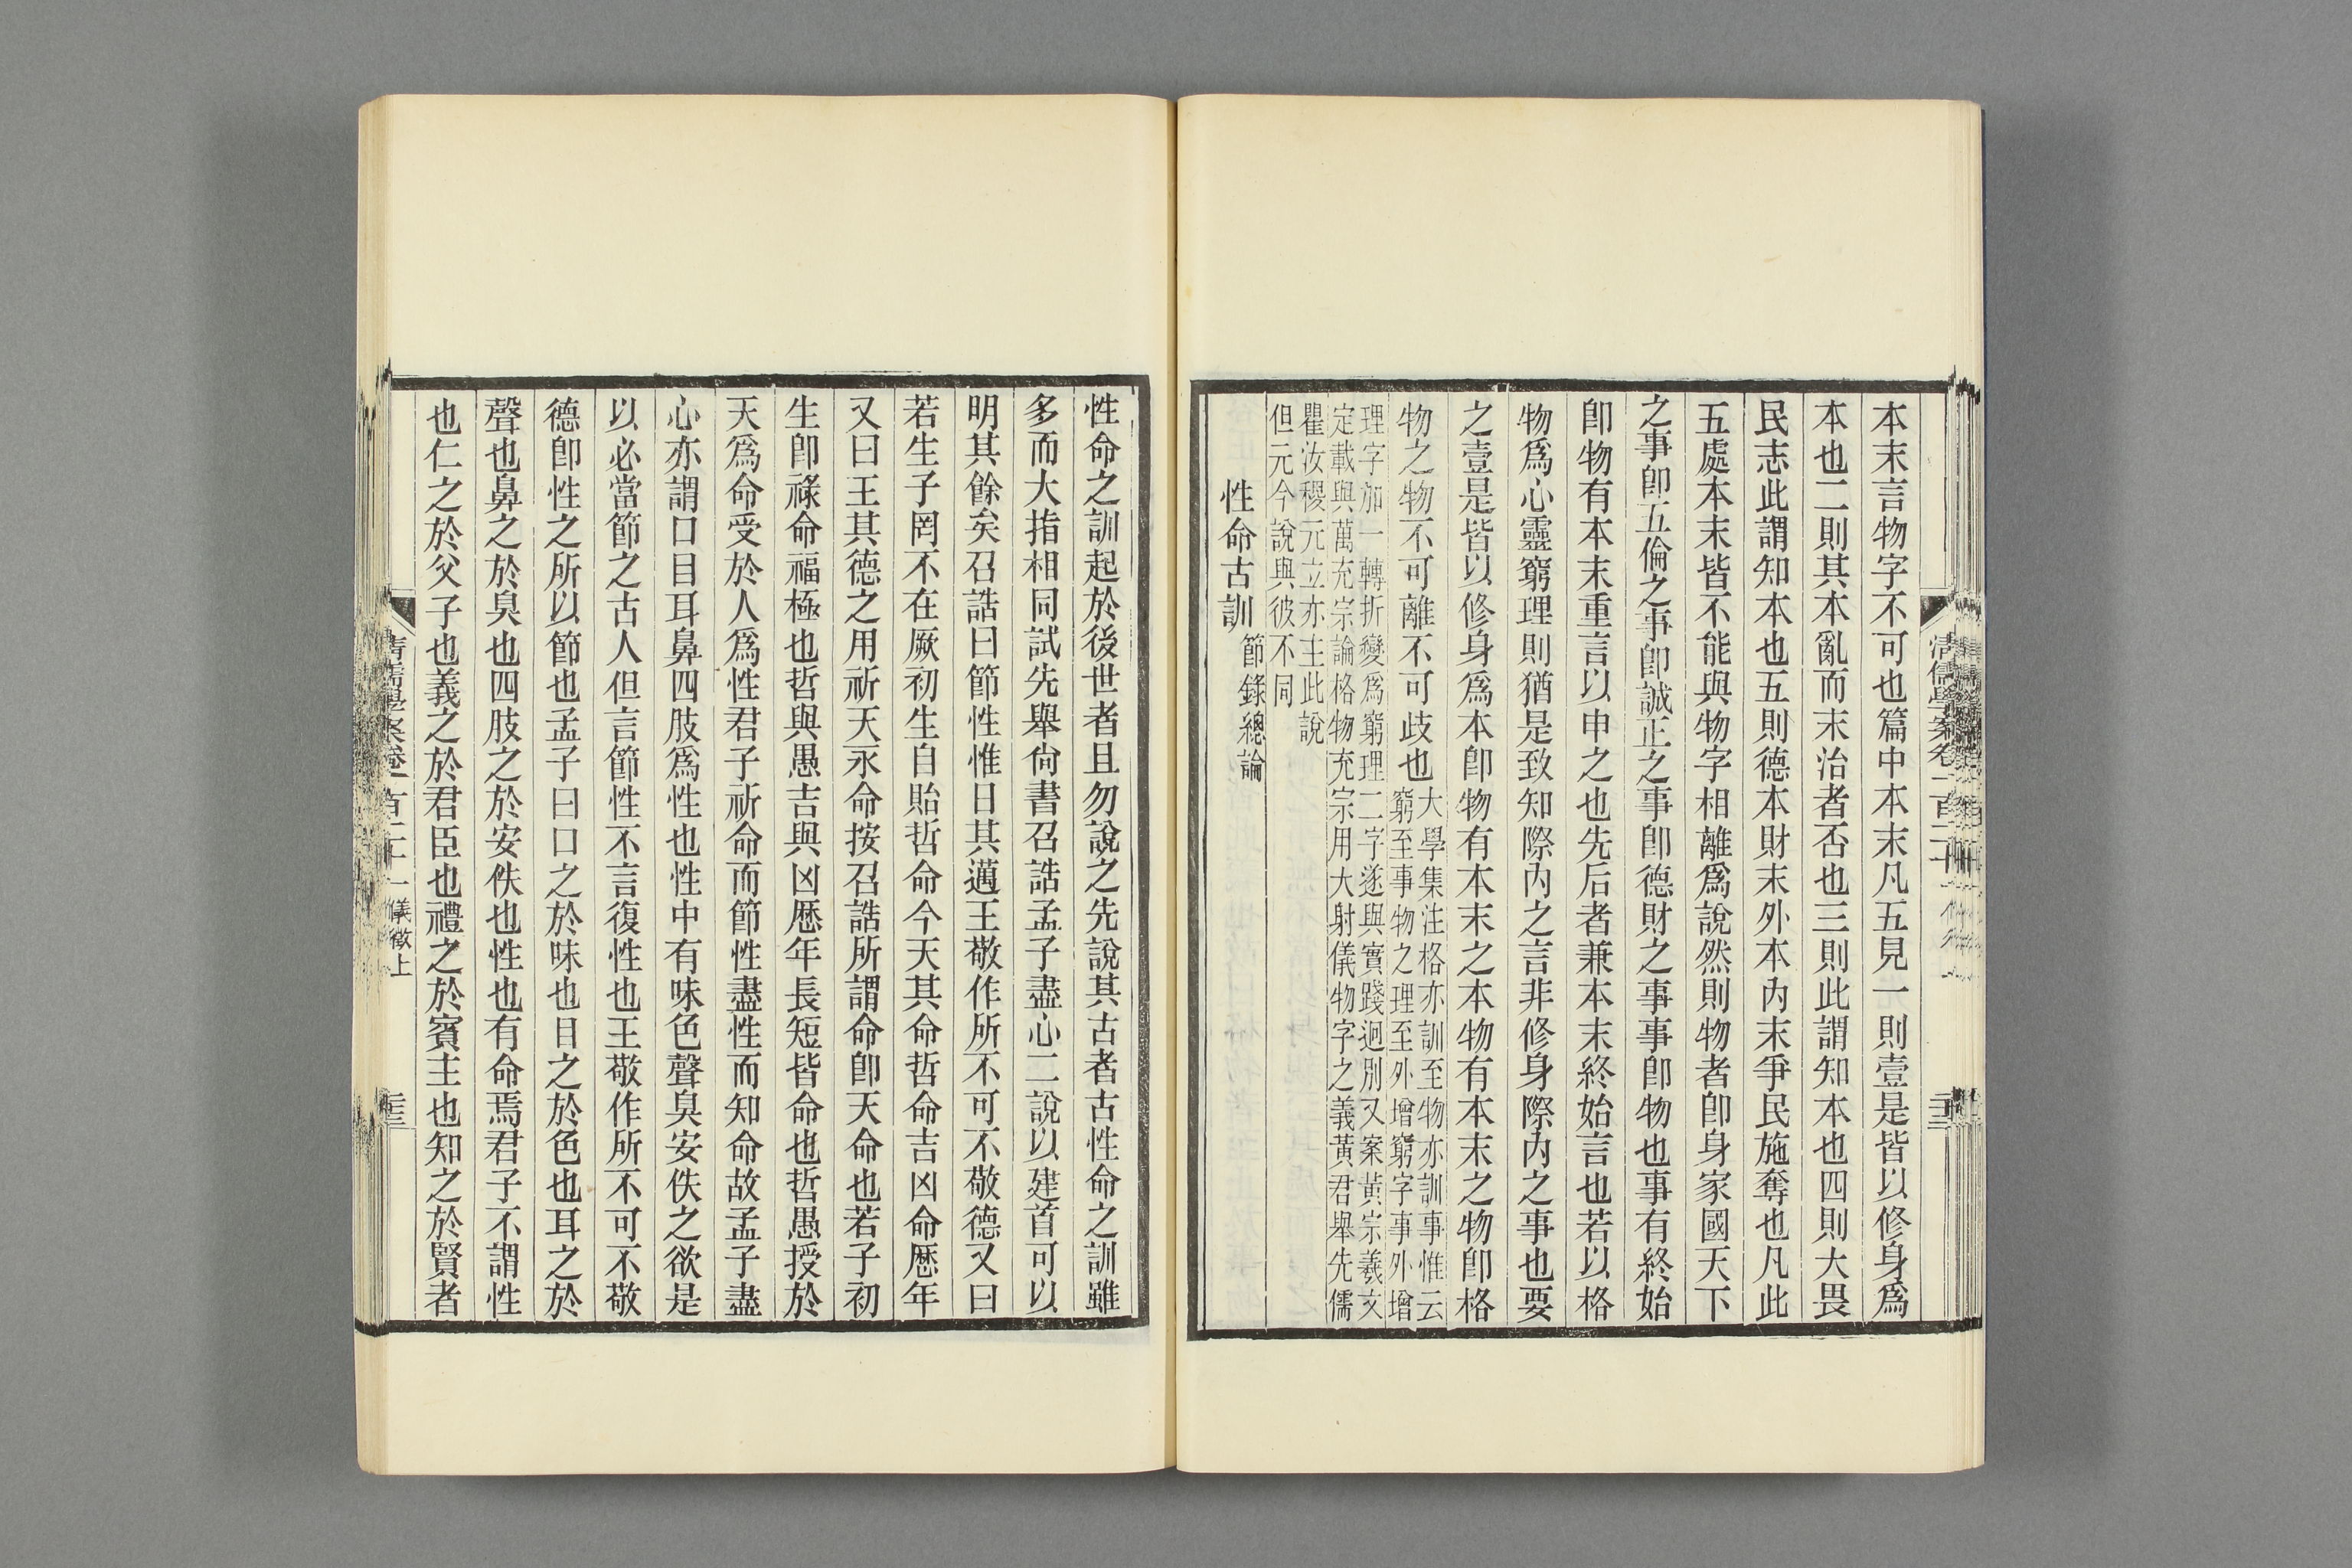 本末言物字不可也篇中本末凡五見一則壹是皆以修身爲
本也二則其本亂而末治者否也三則此謂知本也四則大畏
民志此謂知本也五則德本財末外本內末爭民施奪也凡此
五處本末皆不能與物字相離爲說然則物者卽身家國天下
之事卽五倫之事卽誠正之事卽德財之事事卽物也事有終始
卽物有本末重言以申之也先后者兼本末終始言也若以格
物爲心靈窮理則猶是致知際內之言非修身際內之事也要
之壹是皆以修身爲本卽物有本末之本物有本末之物卽格
物之物不可離不可歧也
大學集注格亦訓至物亦訓事惟云
窮至事物之理至外增窮字事外增
理字加一轉折變爲窮理二字遂與實踐迥別又案黃宗羲文
定載與萬充宗論格物充宗用大射儀物字之義黃君舉先儒
瞿汝稷元立亦主此說
但元今說與彼不同
性命古訓
節錄總論
清儒學案卷一百二十一
性命之訓起於後世者且勿說之先說其古者古性命之訓雖
多而大指相同試先舉尙書召誥孟子盡心二說以建首可以
明其餘矣召誥曰節性惟日其邁王敬作所不可不敬德又曰
若生子罔不在厥初生自貽哲命今天其命哲命吉凶命歷年
又曰王其德之用祈天永命按召誥所謂命卽天命也若子初
生卽祿命福極也哲與愚吉與凶歷年長短皆命也哲愚授於
天爲命受於人爲性君子祈命而節性盡性而知命故孟子盡
心亦謂口目耳鼻四肢爲性也性中有味色聲臭安佚之欲是
以必當節之古人但言節性不言復性也王敬作所不可不敬
德卽性之所以節也孟子曰口之於味也目之於色也耳之於
聲也鼻之於臭也四肢之於安佚也性也有命焉君子不謂性
也仁之於父子也義之於君臣也禮之於賓主也知之於賢者
清儒學案卷一百二十一 儀徵上